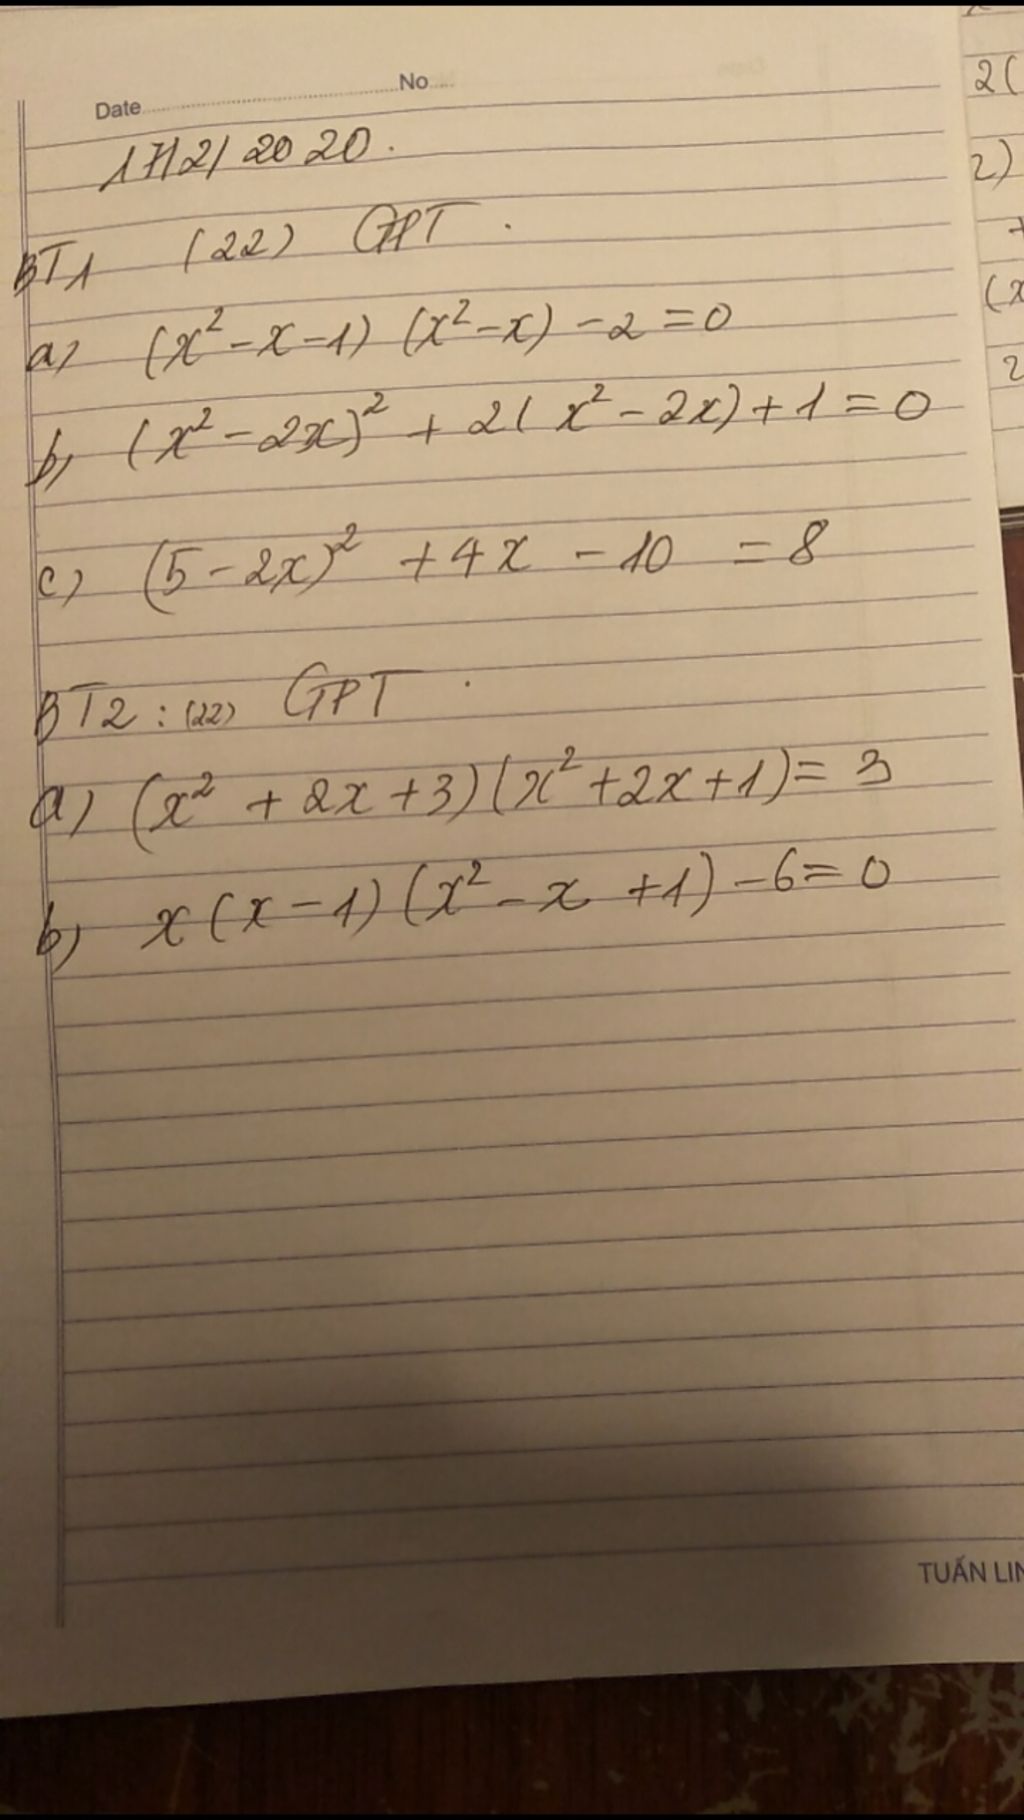 Date No
17/2/2020.
BT1 (22) GPT.
a) (x² - x - 1) (x² - x) - 2 = 0
b) (x² - 2x)² + 2(x² - 2x) + 1 = 0
c) (5 - 2x)² + 4x - 10 = 8
BT2: (22) GPT.
a) (x² + 2x + 3)(x² + 2x + 1) = 3
b) x(x - 1)(x² - x + 1) - 6 = 0
TUẤN LIN
2(
2)
+
(x
2